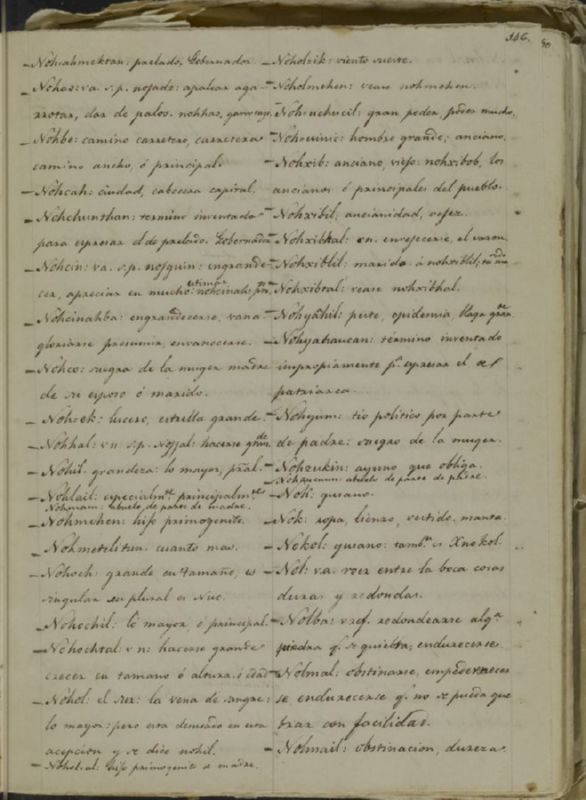 346.
Nohcahmektan: prelado, Gobernador
Nohes: va. s.p. nojade: apalear aga-
rrotar, dar de palos. nohhas,
Nohbe: camino carretero, carretera
camino ancho, ó principal.
Nohcah: ciudad, cabecera capital.
Nohchunthan: termino inventado
para espresar el de prelado. Gobernador
Nohcin: va. s.p. nojquin: engrande-
cer, apreciar en mucho: estimar nohcinah:
Nohcinahba: engrandecerse, vana-
gloriarse presumir, envanecerse.
Nohco: suegra de la muger madre
de su esposo ó marido.
Nohek: lucero, estrella grande.
Nohhal: vn. s.p. Nojjal: hacerse grde
Nohil. grandeza: lo mayor, pral.
Nohlail: especialmte principalmte
Nohmam: abuelo de parte de madre.
Nohmehen: hijo primogenito.
Nohmetelitun. cuanto mas.
Nohoch: grande en tamaño, es
singular su plural es Nuc.
Nohochil: lo mayor, ó principal.
Nohochtal: vn: hacerse grande
crecer en tamano ó altura. ó edad
Nohol: el Sur: la vena de sangre:
lo mayor: pero esta demasiado en esta
acepcion y se dice nohil.
Nohol.al: hijo primogenito de madre.
Noholzik: viento sueste.
Noholmehen: vease nohmehen.
Nohuchucil: gran poder, poder mucho,
Nohuinic: hombre grande; anciano.
Nohxib: anciano, viejo: nohxibob, los
ancianos ó principales del pueblo.
Nohxibil, ancianidad, vejez.
Nohxibhal: vn. envejecerse, el varon,
Nohxiblil: marido. á nohxiblil; tu
Nohxibtal: vease nohxibhal.
Nohyahil: peste, epidemia, llaga grande
Nohyabaucan: término inventado
impropiamente pa. espresar el de
patriarca.
Nohyum: tio politico por parte
de padre: suegro de la muger.
Nohzukin: ayuno que obliga.
abuelo de parte de padre.
Nok: gusano.
Nok: ropa, lienzo, vestido. manta.
Nokol: gusano: tambn. es Xnokol.
Nol: va. roer entre la boca cosas
duras y redondas.
Nolba: vref. redondearse alga.
piedra q. se quiebta, endurecerse
Nolmal: obstinarse, empedernecer
se endurecerse q. no se pueda que
trar con facilidad.
Nolmail: obstinacion, dureza.